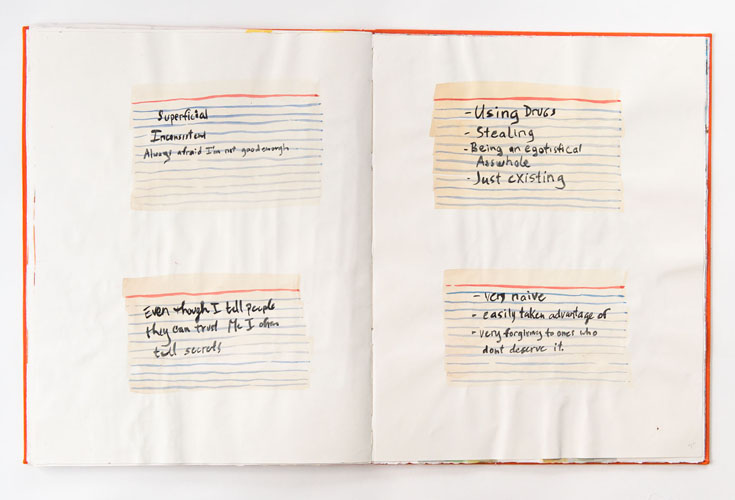 Superficial
Inconsistent
Always afraid I'm not good enough...
Even though I tell people
they can trust Me I often
tell secrets
- Using Drugs
- Stealing
- Being an egotistical
Asswhole
- Just existing
- very naive
- easily taken advantage of
- very forgiving to ones who
dont deserve it.